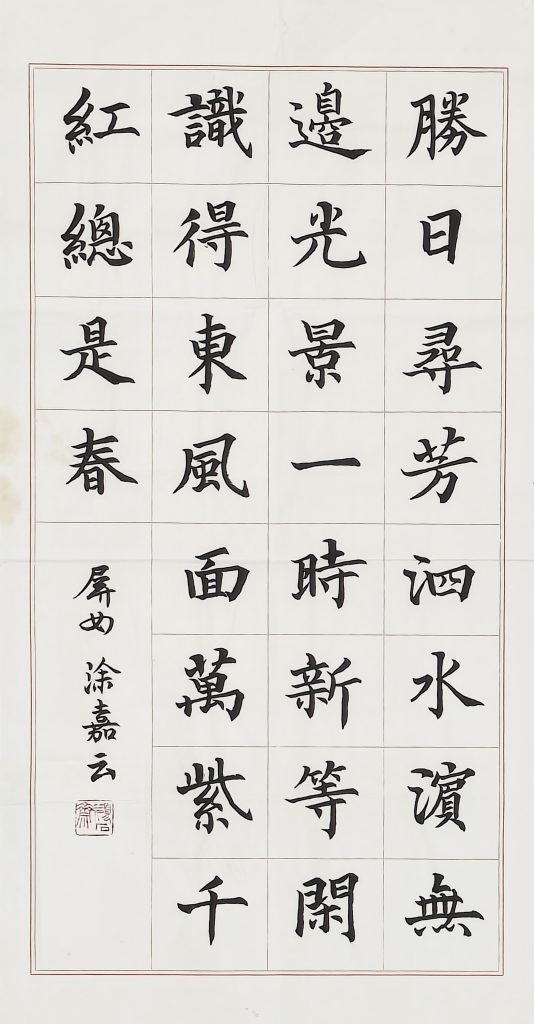 勝日尋芳泗水濱無
邊光景一時新等閑
識得東風面萬紫千
紅總是春
屏女 涂嘉云